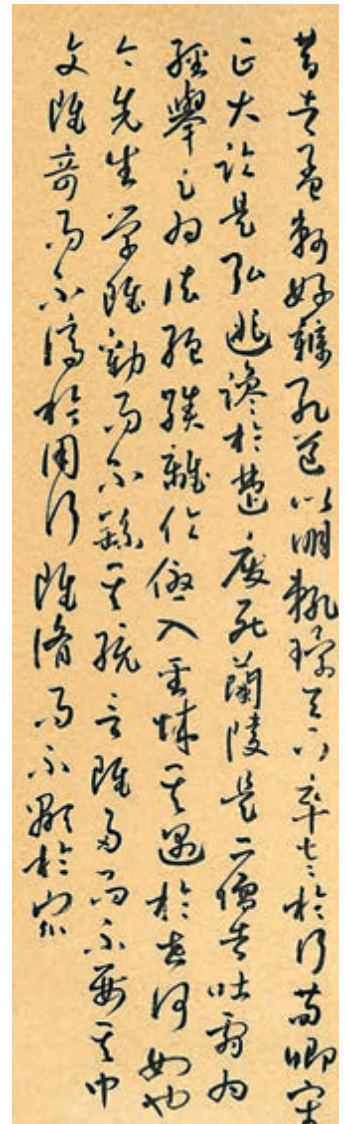 昔者孟軻好辯孔道以明轍環天下卒老於行荀卿守
正大論是弘逃讒於楚廢死蘭陵是二儒者吐辭為
經舉足為法絕類離倫優入聖域其遇於世何如也
今先生學雖勤而不繇其統言雖多而不要其中
文雖奇而不濟於用行雖脩而不顯於眾